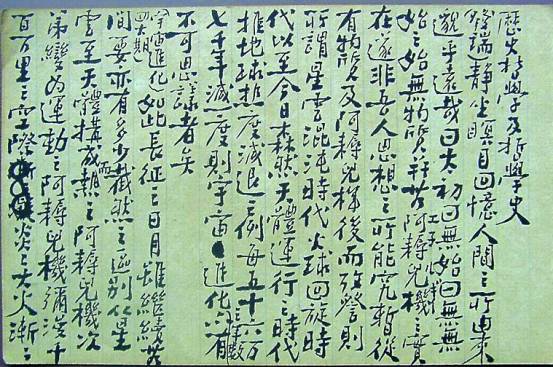 歷史哲學及哲學史
發端靜坐瞑目回憶人間之所由來
邈乎遠哉曰太初曰無始曰無無
始之始無物質并阿耨兒機之實
在邃非吾人思想之所能究暫從
有物質及阿耨兒機後而發則
所謂星雲混沌時代火球回旋時
代以至今日森然天體運行之時代
推地球熱度減退之例每五十六万
七千年減一度則宇宙進化有
不可思議者矣
宇宙進化四大期
如此長征之日月雖繼續
間要亦有多少截然之區別從星
雲至天體構成熱之阿耨兒機次
第變為運動之阿耨兒機彌漫十
百万里之空際炎炎大火漸漸